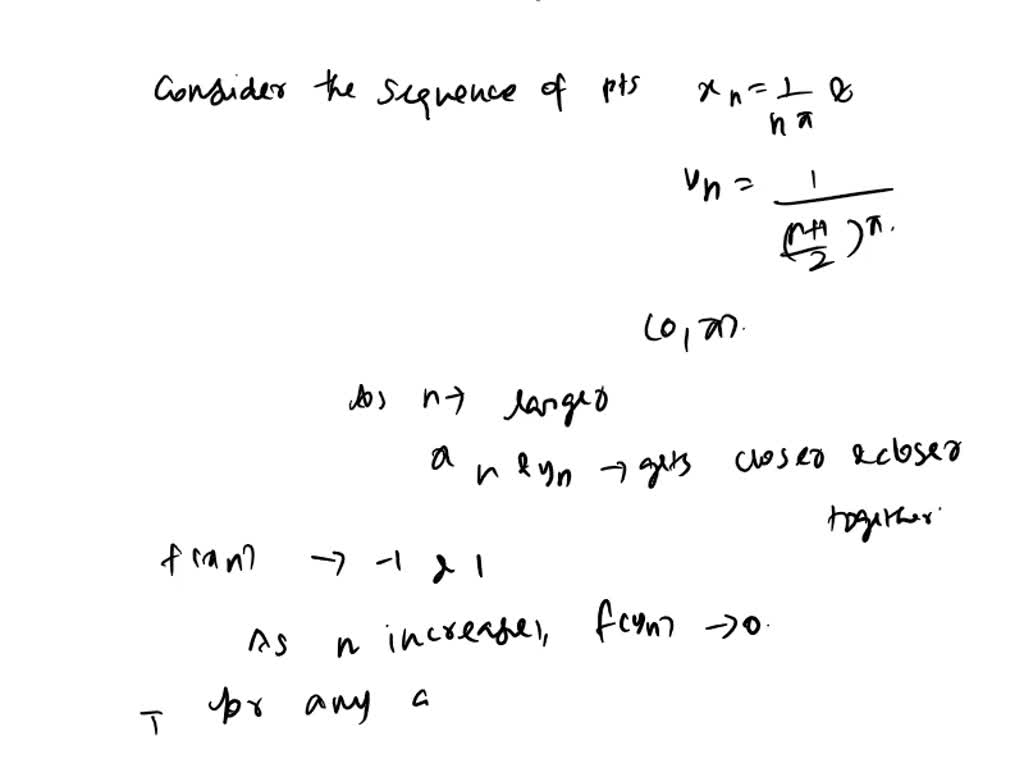 Consider the sequence of pts x_n = 1/(nπ) &
y_n = 1/((n+1)/2)π.
(0, π).
As n → larger
x_n & y_n → gets closer & closer
together.
f(x_n) → -1 & 1
As n increases, f(y_n) → 0.
for any